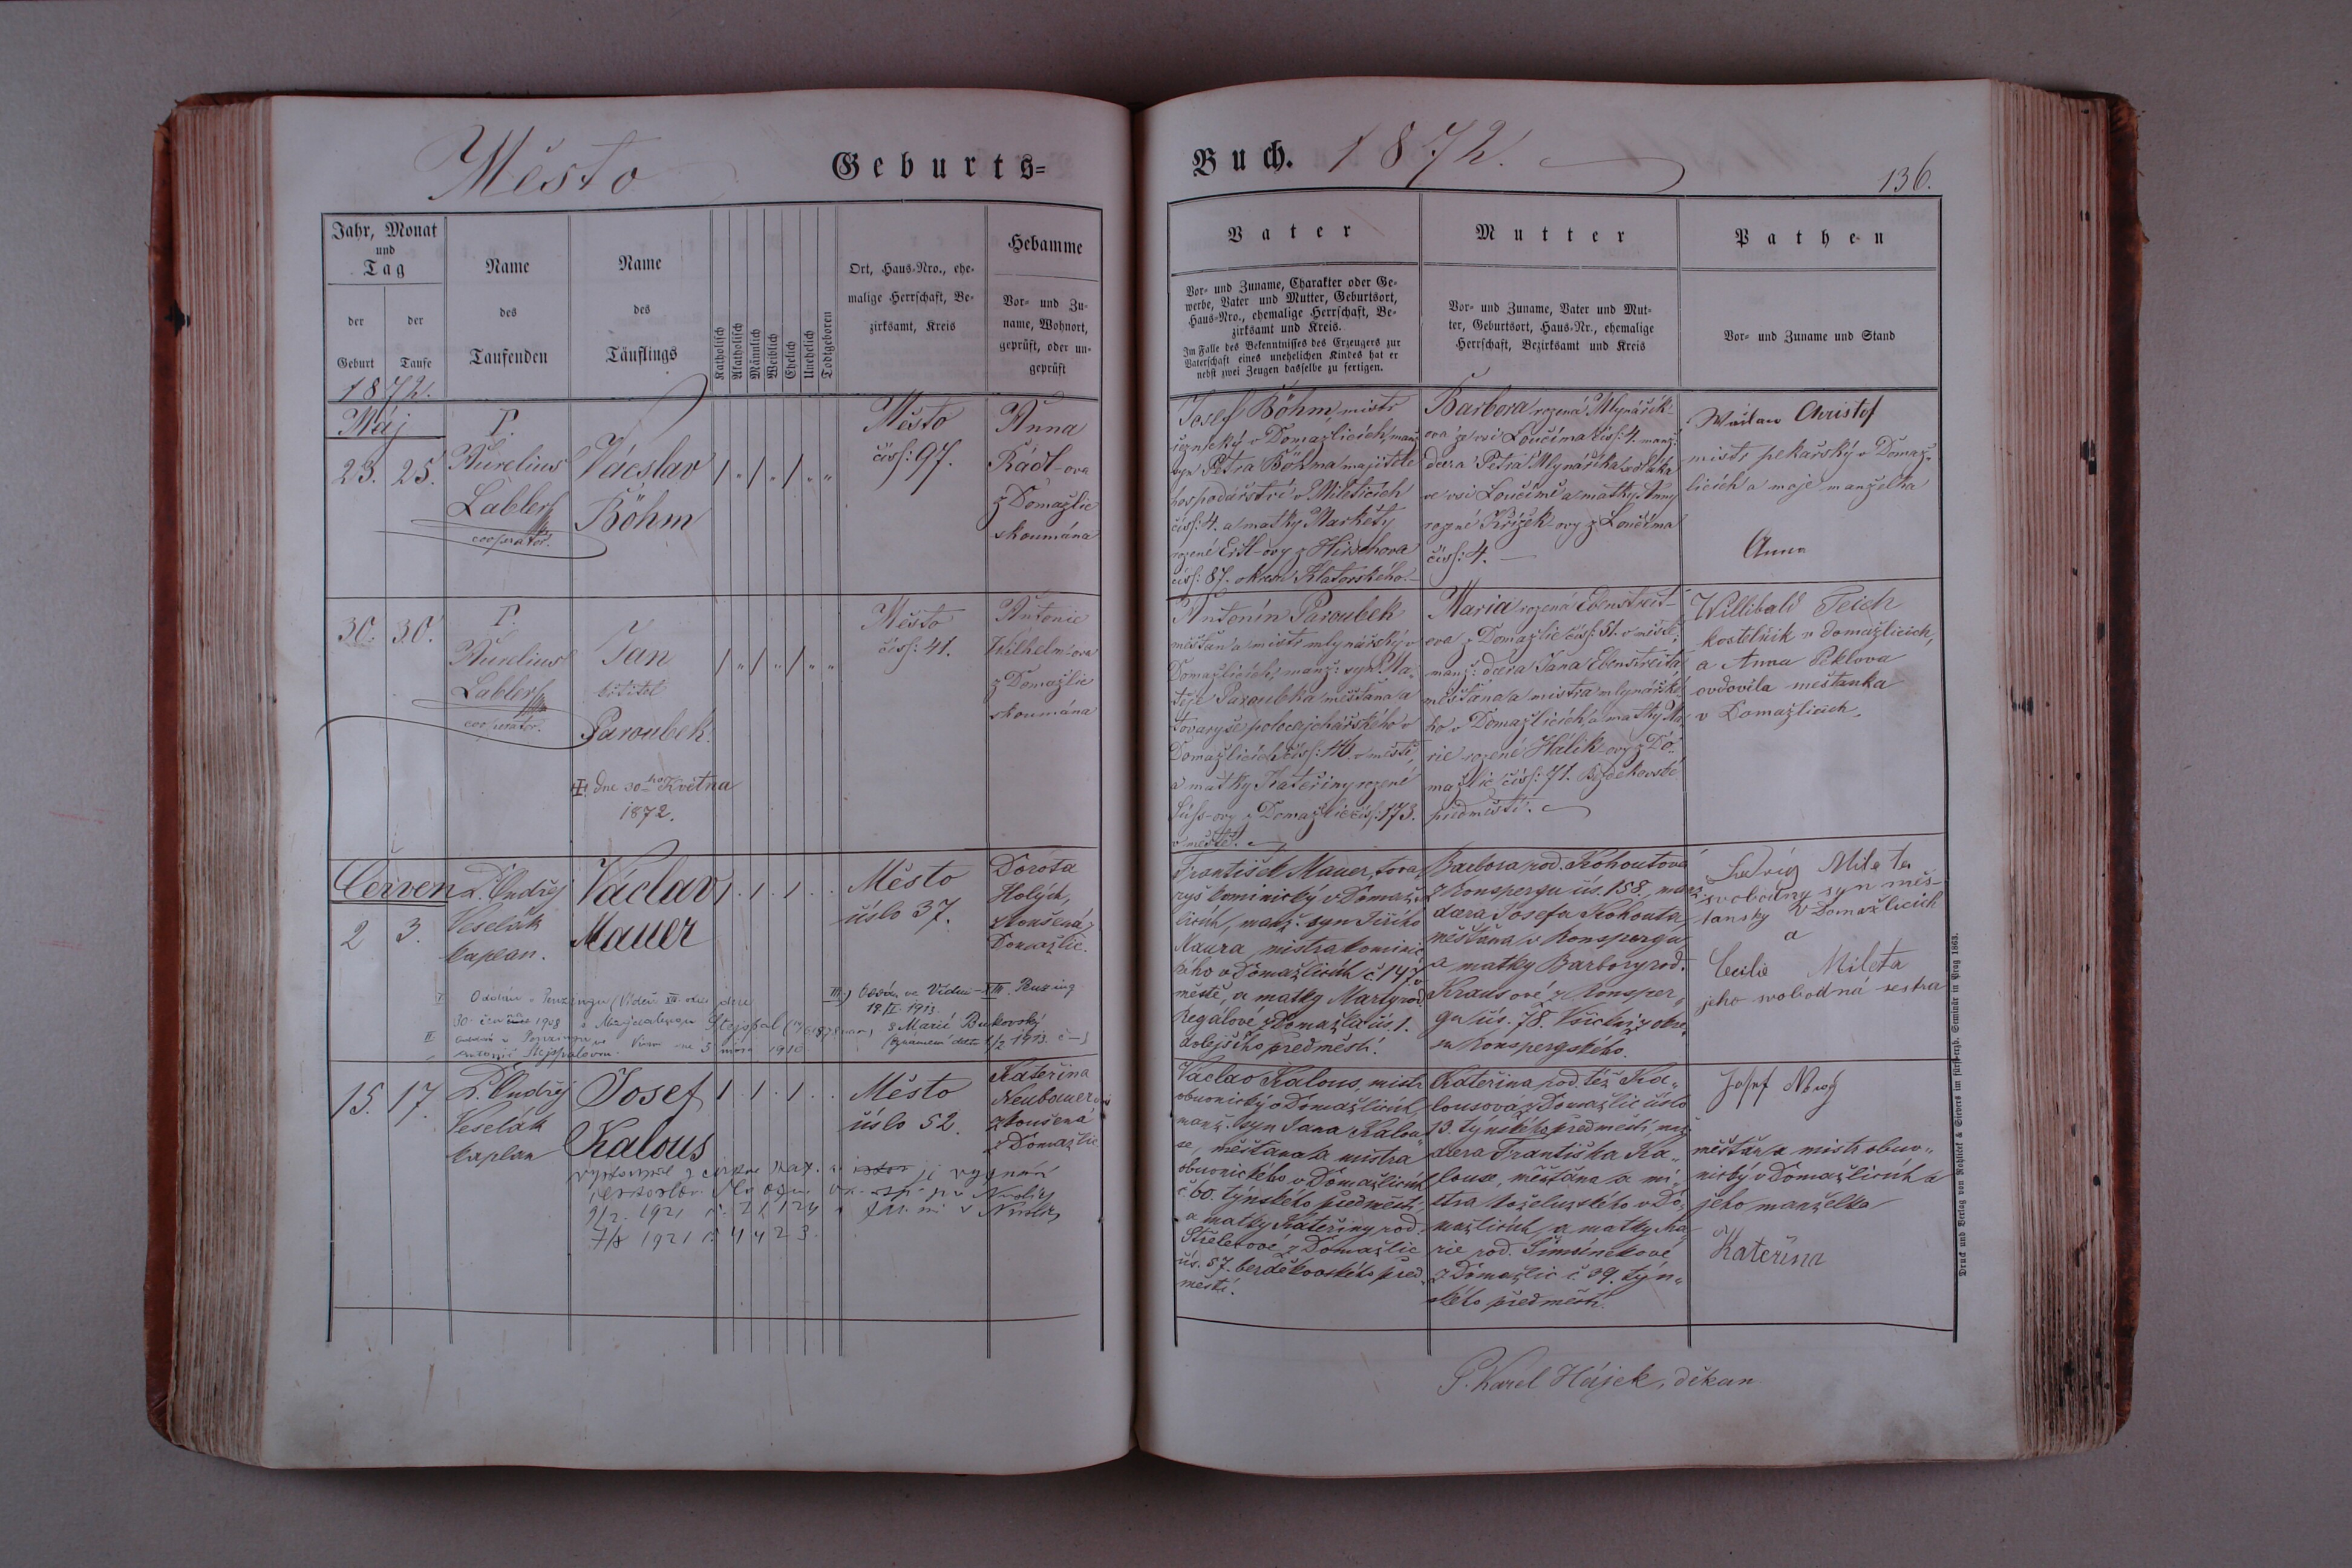 Město
Geburts=
Buch. 1872.
136.
Jahr, Monat
und
Tag
der
Geburt
der
Taufe
Name
des
Taufenden
Name
des
Täuflings
Katholisch
Akatholisch
Männlich
Weiblich
Ehelich
Unehelich
Todtgeboren
Ort, Haus-Nro., ehe-
malige Herrschaft, Be-
zirksamt, Kreis
Hebamme
Vor- und Zu-
name, Wohnort,
geprüft, oder un-
geprüft
Vater
Vor- und Zuname, Charakter oder Ge-
werbe, Vater und Mutter, Geburtsort,
Haus-Nro., ehemalige Herrschaft, Be-
zirksamt und Kreis.
Im Falle des Bekenntnisses des Erzeugers zur
Vaterschaft eines unehelichen Kindes hat er
nebst zwei Zeugen dasselbe zu fertigen.
Mutter
Vor- und Zuname, Vater und Mut-
ter, Geburtsort, Haus-Nr., ehemalige
Herrschaft, Bezirksamt und Kreis
Pathen
Vor- und Zuname und Stand
1872.
Máj
23. 25.
P.
Aurelius
Labler
cooperator.
Vácslav
Böhm
Město
čís: 97.
Anna
Rádl-ova
z Domažlic
skoumána
Josef Böhm, mistr
řeznický v Domažlicích, manž:
syn Petra Böhma majitele
hospodářství v Mileticích
čís: 4. a matky Markéty
rozené Ertl-ovy z Hirschova
čís: 87. okresu Klatovského.
Barbora rozená Mlynářík-
ova ze vsi Loučíma čís: 4. manž:
dcera Petra Mlynaříka sedláka
ve vsi Loučímě a matky Anny
rozené Křížek-ovy z Loučíma
čís: 4.
Christof
mistr pekařský v Domaž-
licích a moje manželka
Anna
30. 30.
P.
Aurelius
Labler
cooperator.
Jan
křtitel
Paroubek.
† dne 30ho Května
1872.
Město
čís: 41.
Antonie
Wilhelm-ova
z Domažlic
skoumána
Antonín Paroubek
měšťan a mistr mlynářský v
Domažlicích, manž: syn Ma-
těje Paroubka měšťana a
tovaryše
Domažlicích čís: 116. v městě,
a matky Kateřiny rozené
Süss-ovy z Domažlic čís: 173.
v městě.
Maria rozená Ebenstreit-
ova z Domažlic čís: 51. v městě,
manž: dcera Jana Ebenstreita,
měšťana a mistra mlynářské-
ho v Domažlicích, a matky Ma-
rie rozené Hálik-ovy z Do-
mažlic čís: 71. Bezděkovské
předměstí.
Willibald Teich
kostelník v domažlicích,
a Anna Peklova
ovdověla mešťanka
v Domažlicích.
Červen
2 3.
P. Ondřej
Veselák
kaplan.
Václav
Mauer
Město
číslo 37.
Dorota
Holých,
zkoušená z
Domažlic.
František Mauer, tova-
ryš kominický v Domaž-
licích, manž. syn Jiřího
Maura, mistra kominic-
kého v Domažlicích č 147. v
městě, a matky Marty rod.
Regálové z Domažlic čís. 1.
dolejšího předměstí.
Barbora rod. Kohoutová
z Ronspergu čís. 158, manž.
dcera Josefa Kohouta,
měšťana v Ronspergu
a matky Barbory rod.
Krausové z Ronsper-
gu čís. 78. Všichni z okre-
su Ronspergského.
Ludvíg Mileta
svobodný syn měš-
tansky v Domažlicích
a
Cecilie Mileta
jeho svobodná sestra
30. 1908
III.) Oddán ve Vídni XIII. Penzing
18./II. 1913
s Marií Bukovský
15. 17.
P. Ondřej
Veselák
kaplan
Josef
Kalous
Město
číslo 52.
Kateřina
Neubauerová
zkoušená
z Domažlic
9/2. 1921
7/8 1921 č 4423.
Václav Kalous, mistr
obuvnický v Domažlicích,
manž. syn Jana Kalou-
se, měšťana a mistra
obuvnického v Domažlicích
č 60. týnského předměstí,
a matky Kateřiny rod.
Střelcové z Domažlic
čís. 57. bezděkovského před-
městí.
Kateřina rod. též Ka-
lousová z Domažlic číslo
13. týnského předměstí manž.
dcera Františka Ka-
louse, měšťana a mi-
stra koželužského v Do-
mažlicích, a matky Ma-
rie rod. Šimsinekové
z Domažlic č. 39. týn-
ského předměstí.
Josef Nový
měšťan a mistr obuv-
nický v Domažlicích a
jeho manželka
Kateřina
P. Karel Hájek, děkan
Druck und Verlag von Rohliček & Sievers im fürsterzb. Seminär in Prag 1863.